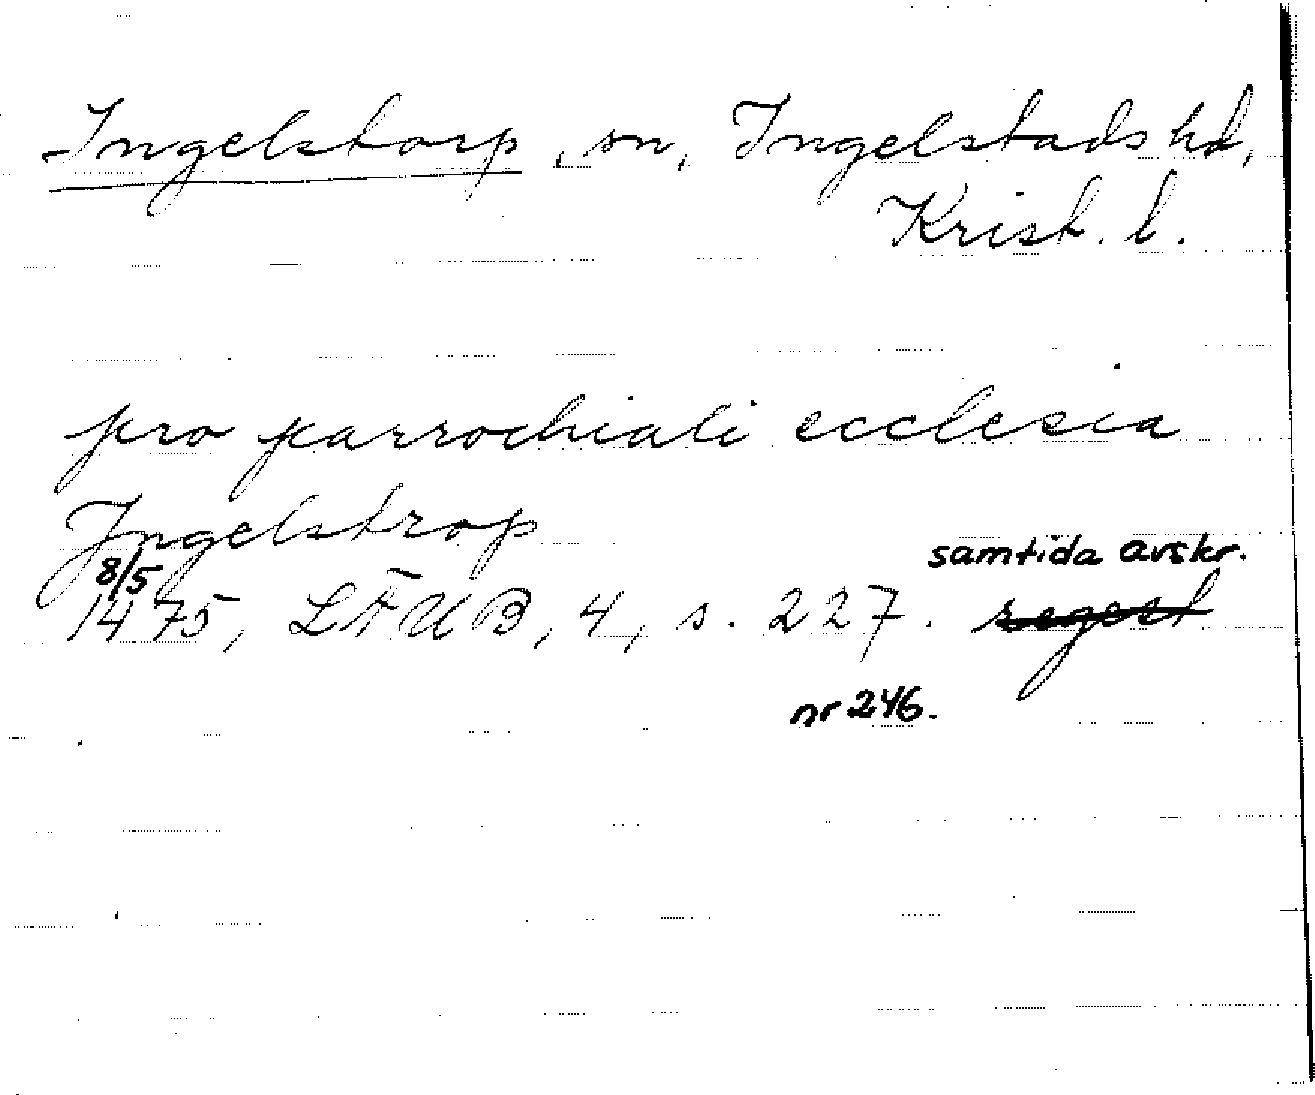 Ingelstorp, sn, Ingelstads hd,
Krist. l.
pro parrochiali ecclesia
Ingelstrop
8/5 samtida avskr.
1475, LÄUB, 4, s. 227. regest
nr 246.